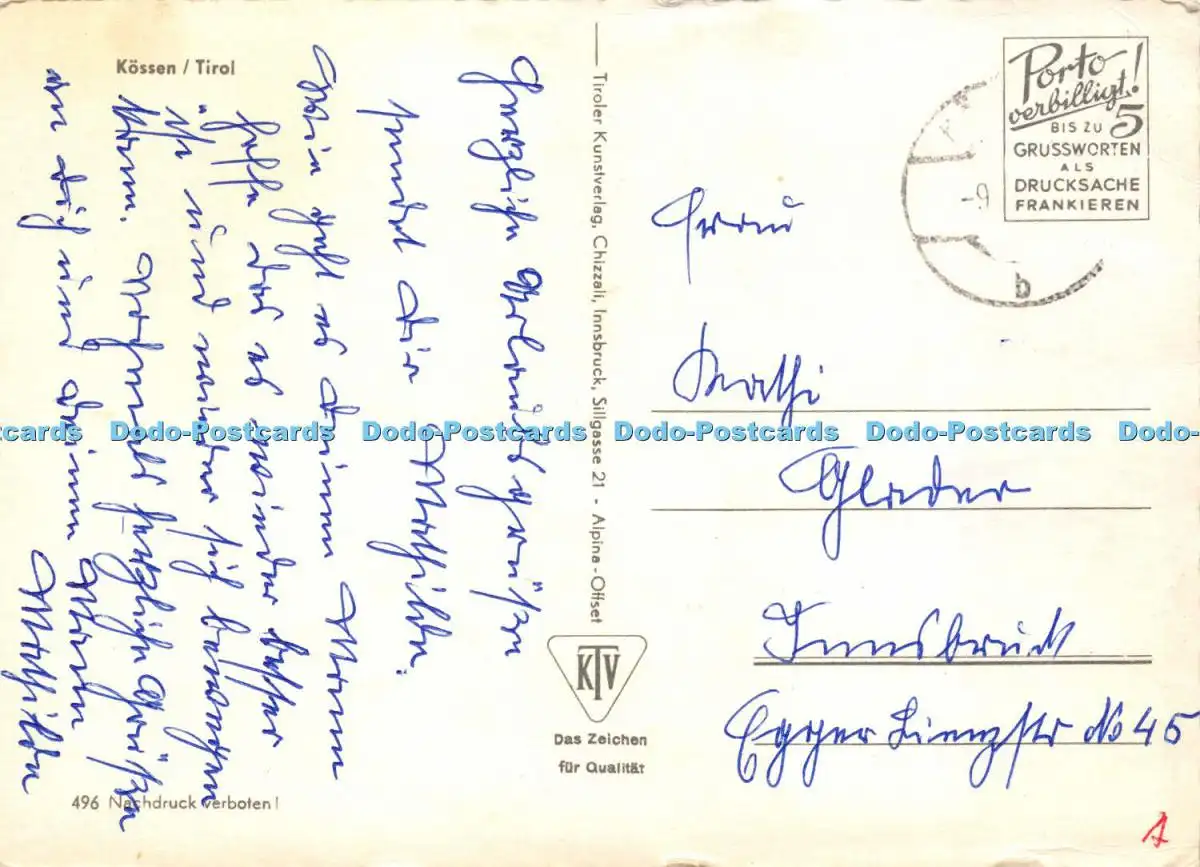 Kössen / Tirol
Herzliche Urlaubsgrüße
sendet dir Mathilde.
Wie geht es deinem Mann
hoffe das es wieder besser
ist und wieder sich bewegen
kann. Nochmals herzliche Grüße
an dich und deinem Mann
Mathilde
496 Nachdruck verboten!
Tiroler Kunstverlag, Chizzali, Innsbruck, Sillgasse 21 - Alpina-Offset
KTV
Das Zeichen
für Qualität
Porto
verbilligt!
BIS ZU 5
GRUSSWORTEN
ALS
DRUCKSACHE
FRANKIEREN
-9
b
Frau
Kathi
Glader
Innsbruck
Egger Lienzstr No 45
Dodo-Postcards Dodo-Postcards Dodo-Postcards Dodo-Postcards
A